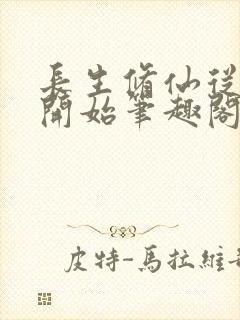 長生脩仙從
開始筆趣閣
皮特-馬拉維